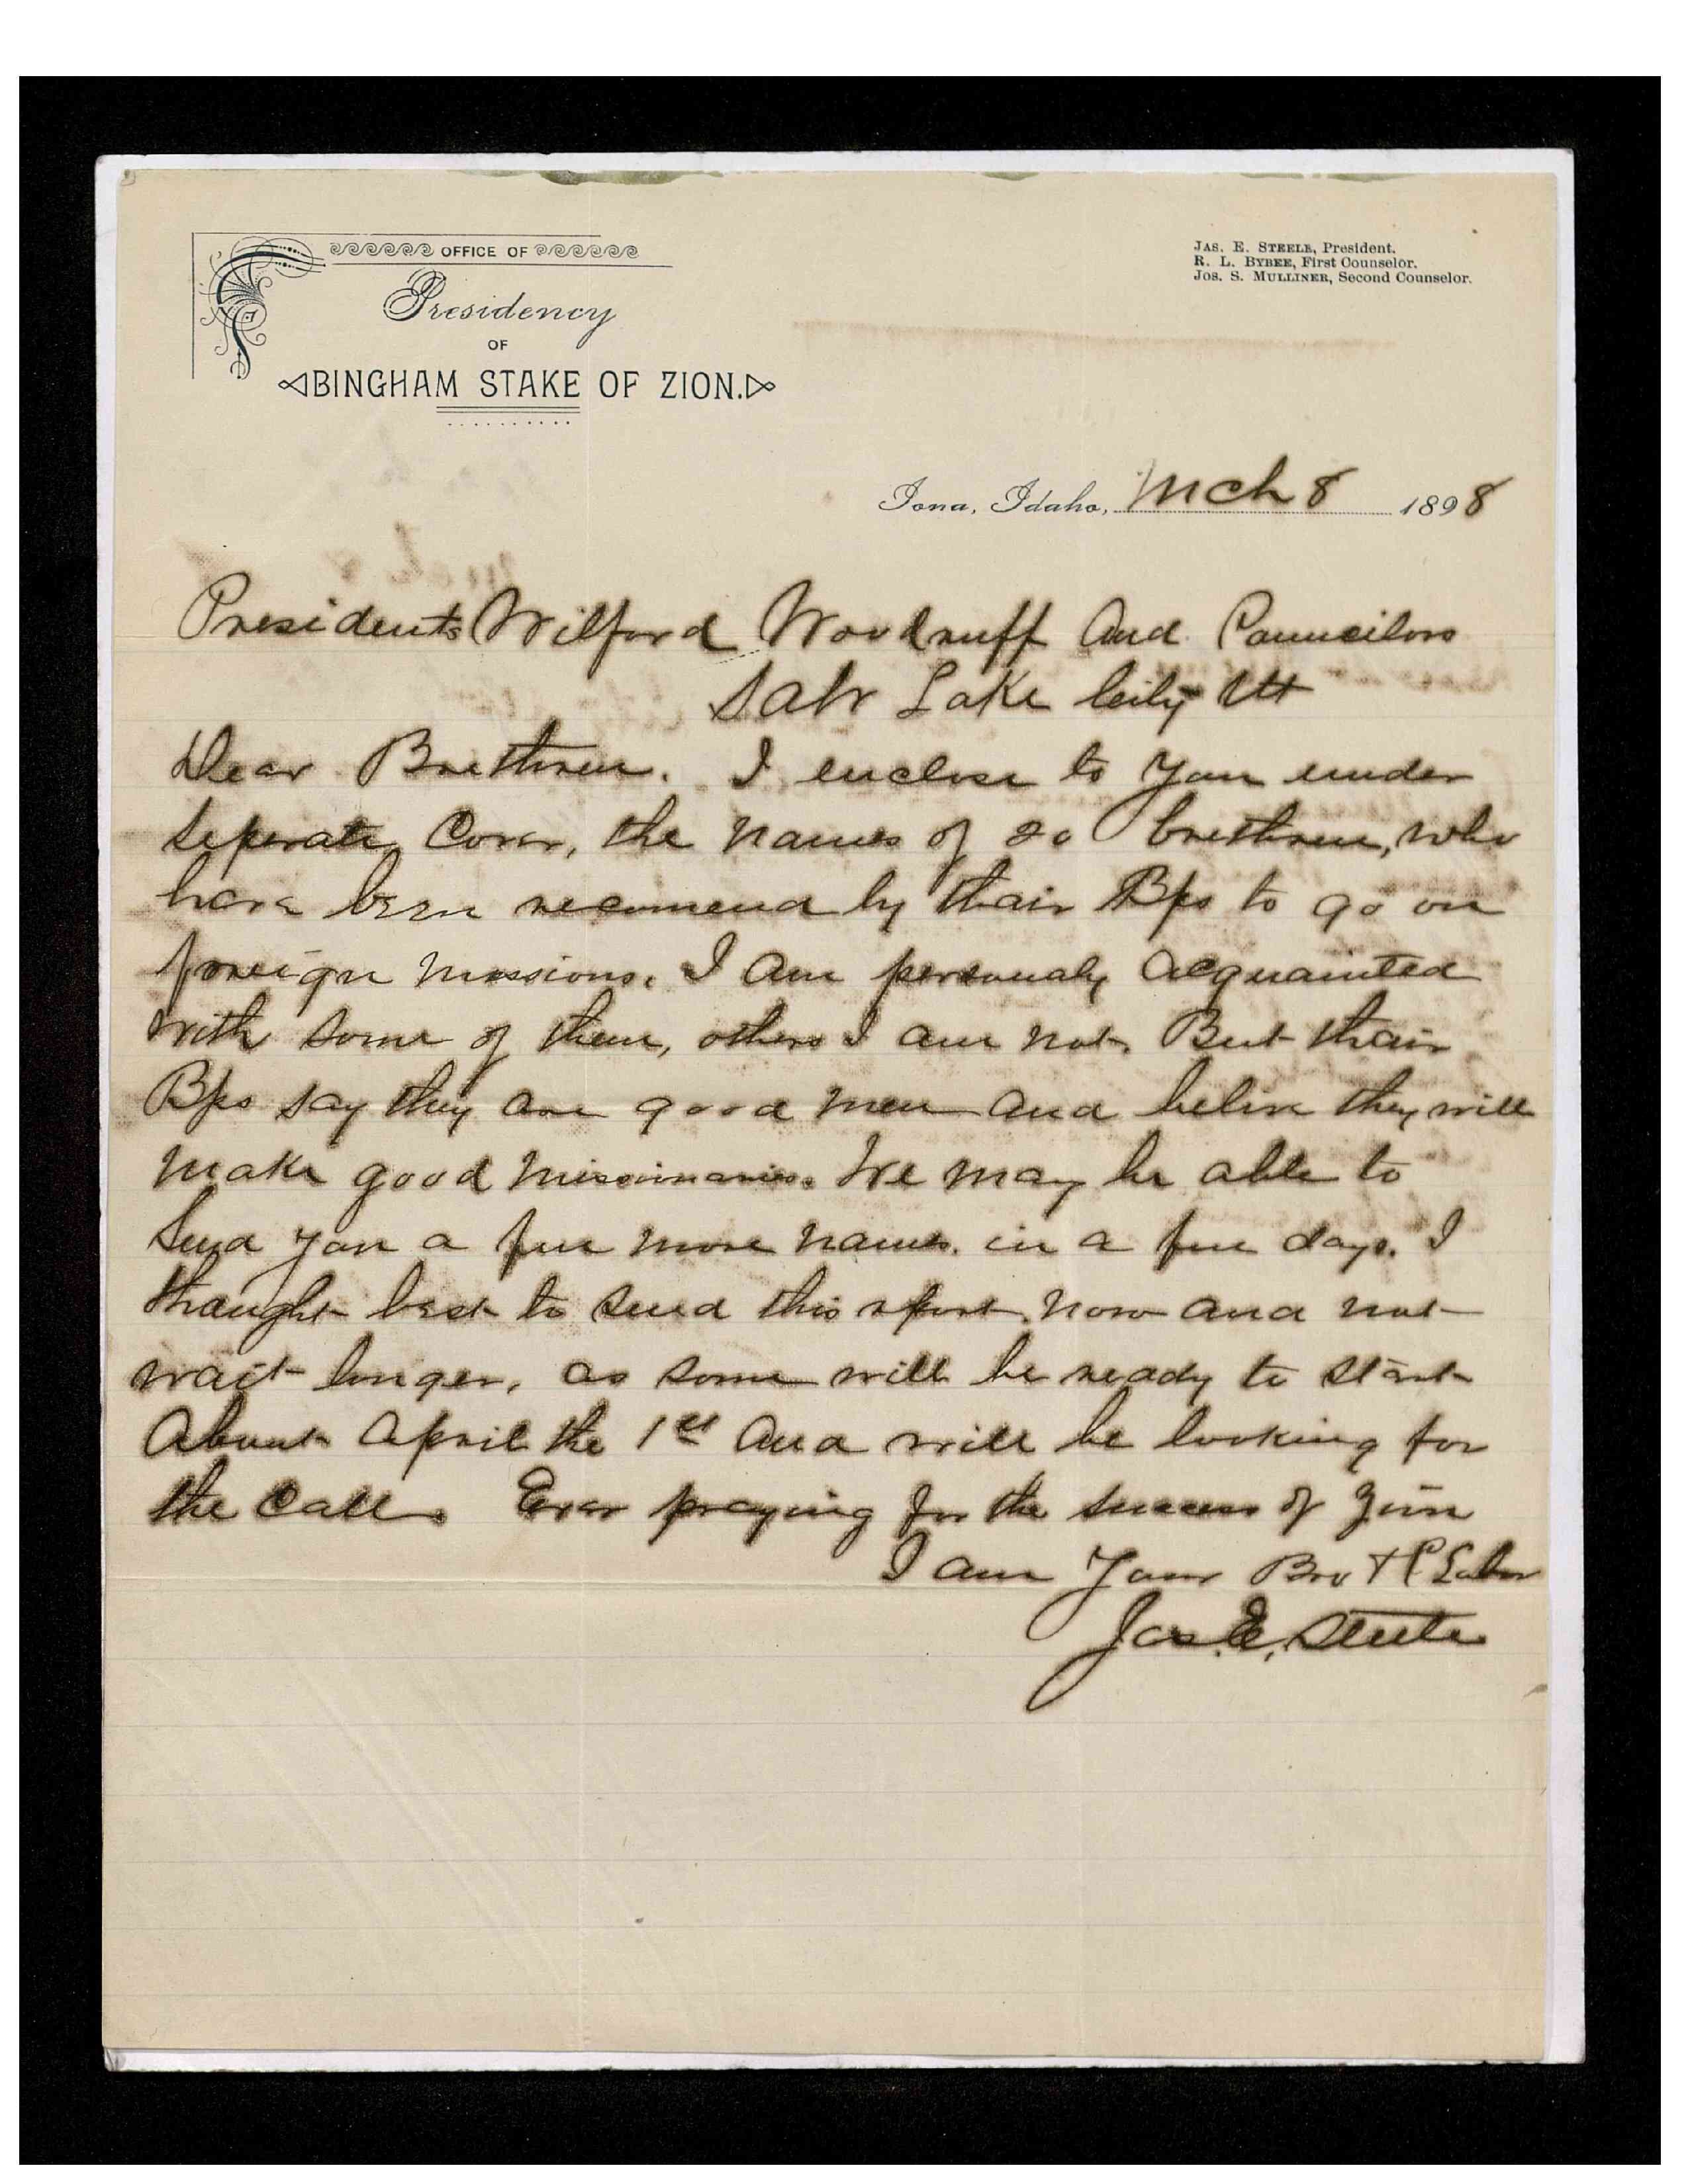 OFFICE OF
Presidency
OF
BINGHAM STAKE OF ZION.
JAS. E. STEELE, President.
R. L. BYBEE, First Counselor.
JOS. S. MULLINER, Second Counselor.
Iona, Idaho, Mch 8 1898
Presidents Wilford Woodruff And Councilors
Salt Lake City Ut
Dear Brethren. I enclose to you under
seperate Cover, the names of 20 brethren, who
have been recomend by thair Bps to go on
foreign missions. I Am personaly acquainted
with some of them, others I am not. But thair
Bps say they are good men and belive they will
make good missionaries. We may be able to
send you a few more names. in a few days. I
thought best to send this report now and not
wait longer, as some will be ready to start
About April the 1st And will be looking for
the Call. Ever praying for the success of Zion
I am Your Bro
Jas. E. Steele